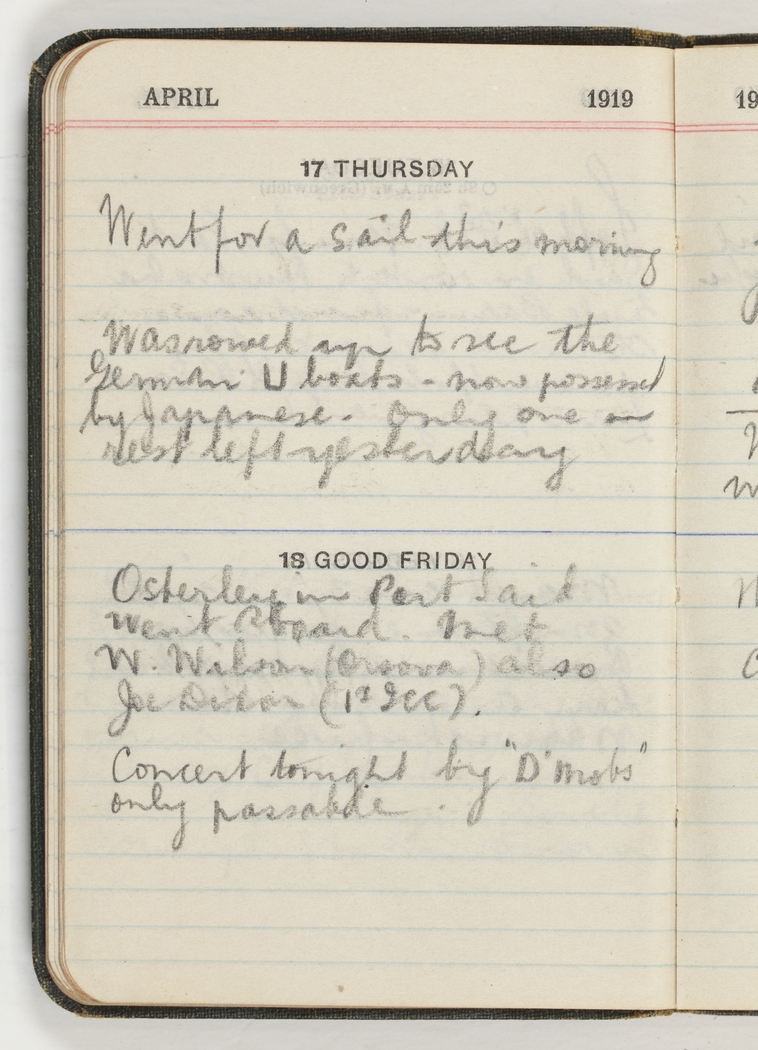 APRIL 1919
17 THURSDAY
Went for a sail this morning
Was rowed up to see the
German U boats - now possessed
by Japanese. Only one as
rest left yesterday
18 GOOD FRIDAY
Osterley in Port Said
Went Aboard. Met
W. Wilson (Orsova) also
Joe Dixon (1st Sec).
Concert tonight by "D'Mobs"
only passable.
19